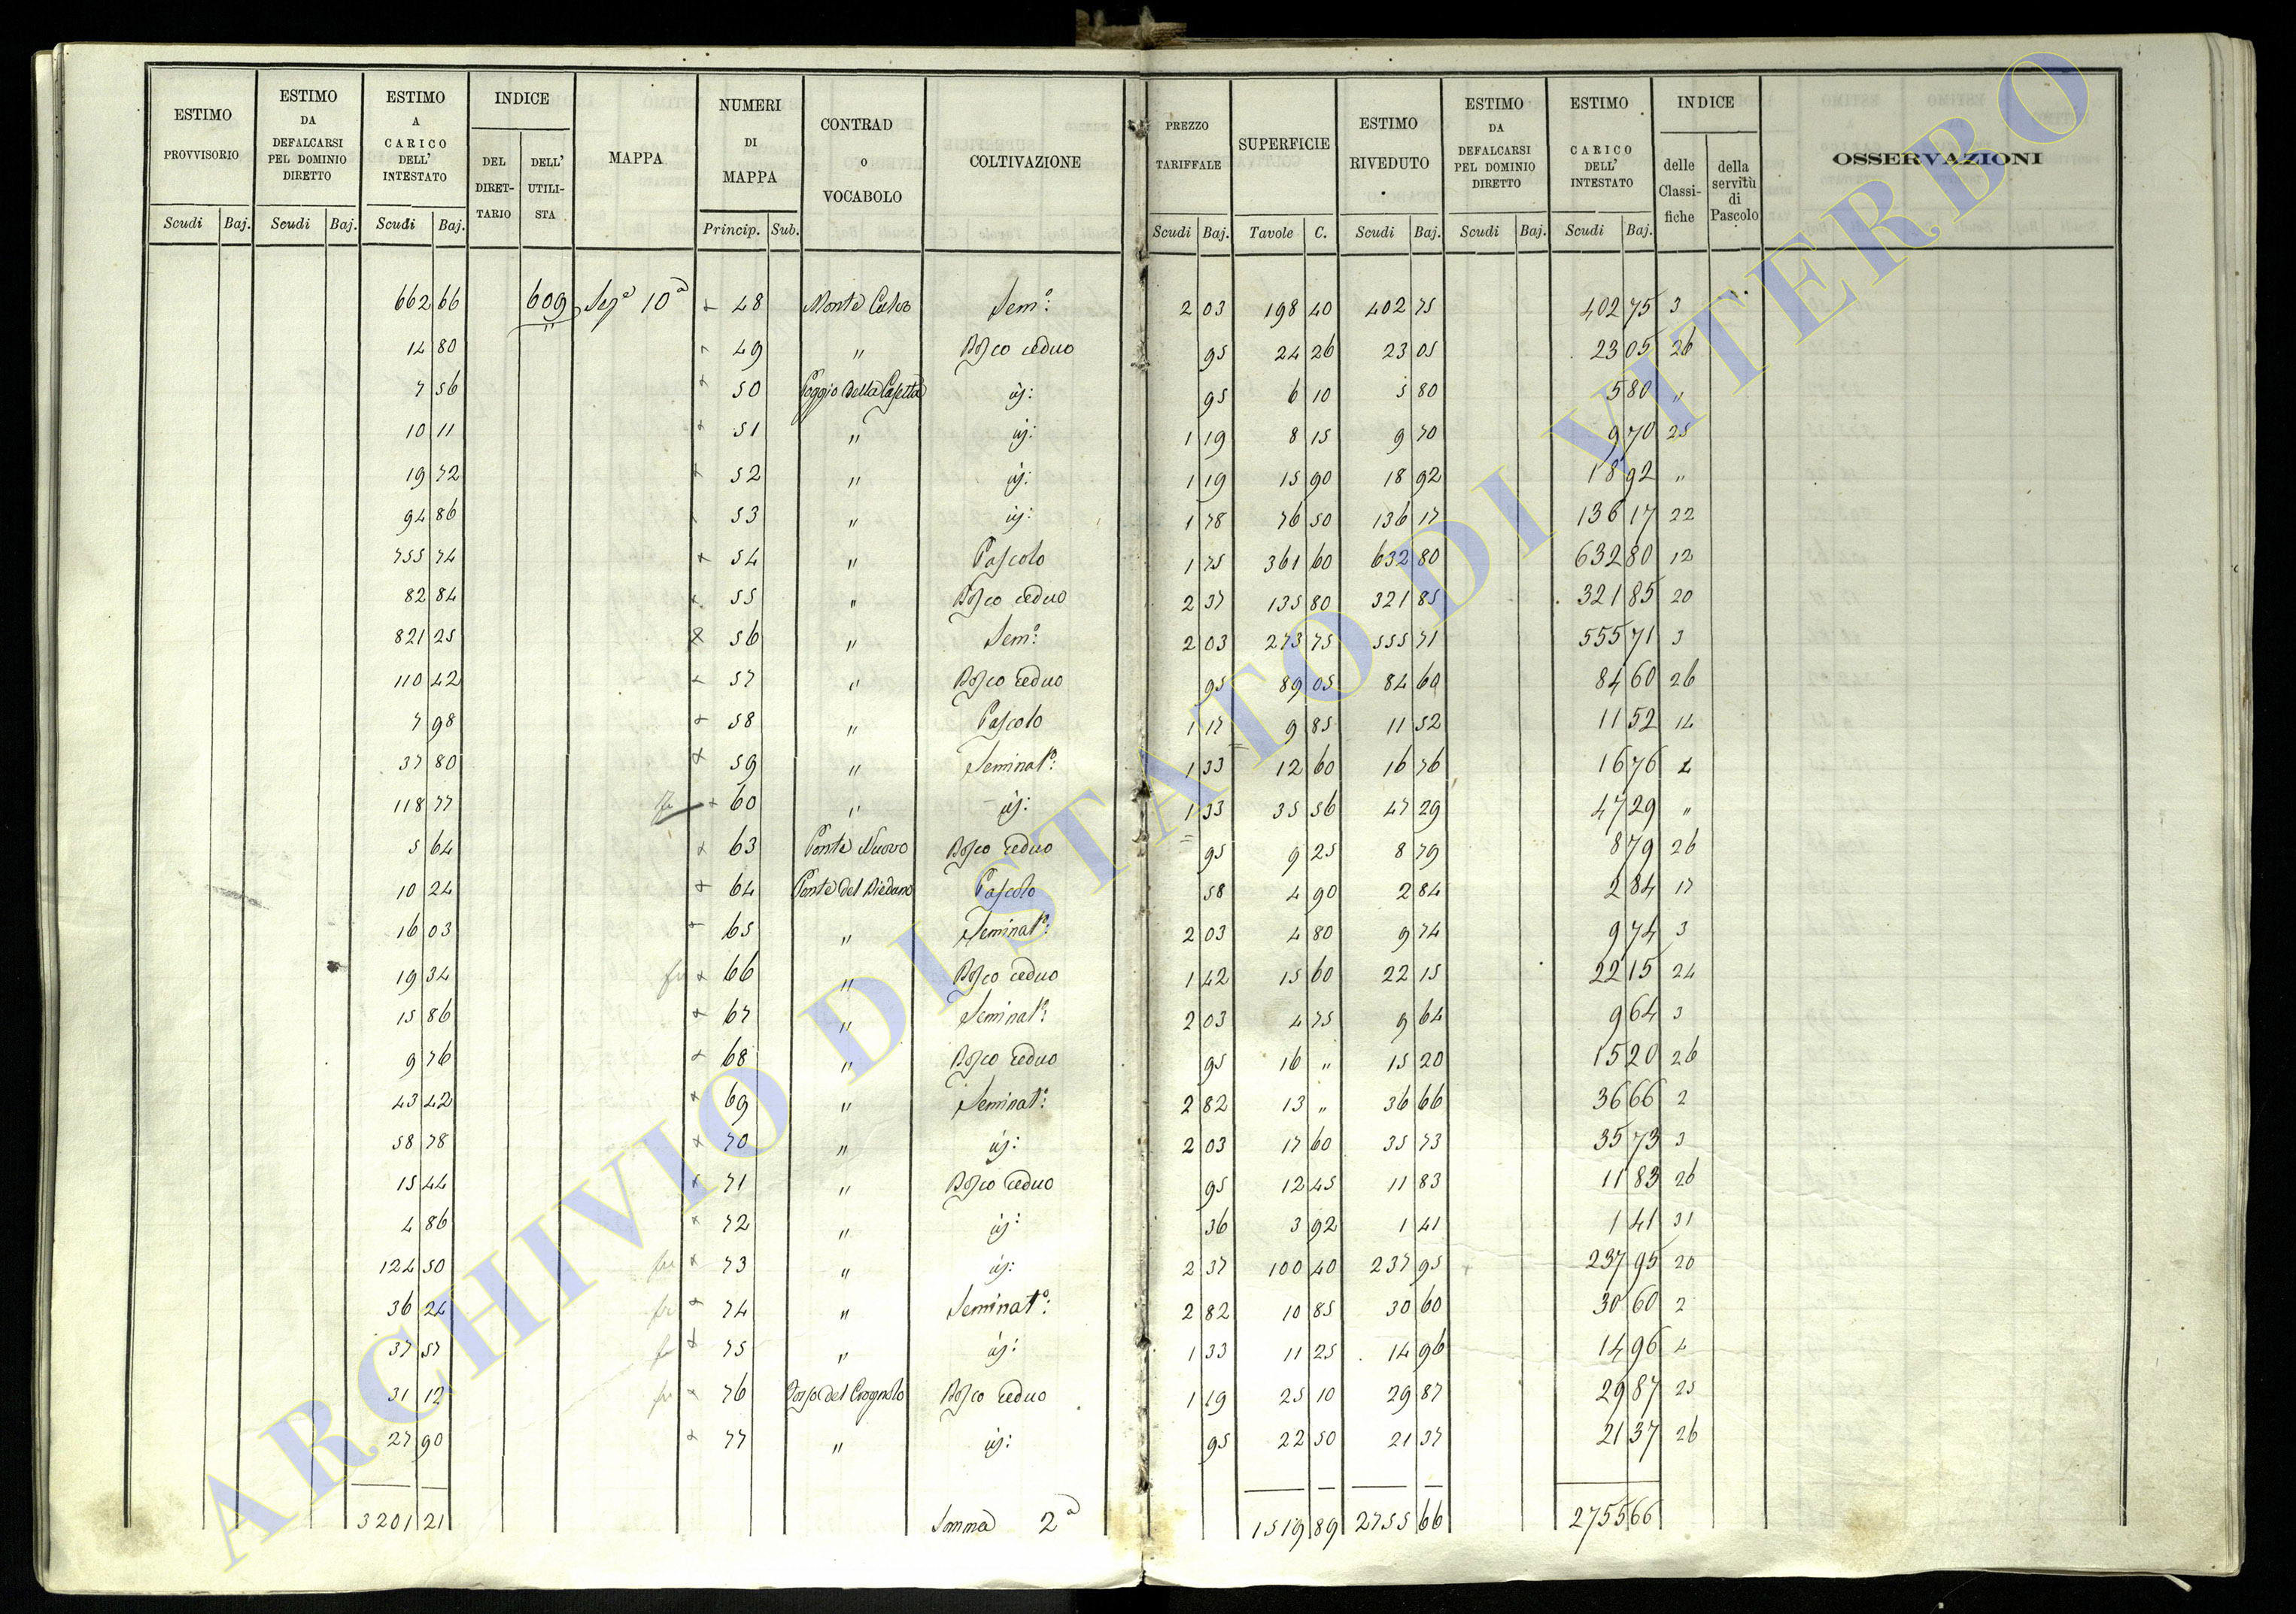 ESTIMO PROVVISORIO | ESTIMO DA DEFALCARSI PEL DOMINIO DIRETTO | ESTIMO A CARICO DELL' INTESTATO | INDICE DEL DIRETTARIO | DELL' UTILISTA | MAPPA | NUMERI DI MAPPA | CONTRAD o VOCABOLO | COLTIVAZIONE | PREZZO TARIFFALE | SUPERFICIE | ESTIMO RIVEDUTO | ESTIMO DA DEFALCARSI PEL DOMINIO DIRETTO | ESTIMO A CARICO DELL' INTESTATO | INDICE delle Classifiche | della servitù di Pascolo | OSSERVAZIONI
Scudi Baj. | Scudi Baj. | Scudi Baj. | Princip. Sub. | Scudi Baj. | Tavole C. | Scudi Baj. | Scudi Baj. | Scudi Baj.
662 66 609 10ª 48 Monte Calvo Sem°: 2 03 198 40 402 75 402 75 3
14 80 " 49 " Bosco ceduo 95 24 26 23 05 23 05 26
7 56 50 Poggio della Casetta id: 95 6 10 5 80 5 80 "
10 11 51 " id: 1 19 8 15 9 70 9 70 25
19 72 52 " id: 1 19 15 90 18 92 18 92 "
94 86 53 " id: 1 78 76 50 136 17 136 17 22
755 74 54 " Pascolo 1 75 361 60 632 80 632 80 12
82 84 55 " Bosco ceduo 2 37 135 80 321 85 321 85 20
821 25 56 " Sem°: 2 03 273 75 555 71 555 71 3
110 42 57 " Bosco ceduo 95 89 05 84 60 84 60 26
7 98 58 " Pascolo 1 17 9 85 11 52 11 52 14
37 80 59 " Seminat°: 1 33 12 60 16 76 16 76 4
118 77 60 " id: 1 33 35 56 47 29 47 29 "
5 64 63 Ponte Nuovo Bosco ceduo 95 9 25 8 79 8 79 26
10 24 64 Ponte del Biedano Pascolo 58 4 90 2 84 2 84 17
16 03 65 " Seminat°: 2 03 4 80 9 74 9 74 3
19 34 66 " Bosco ceduo 1 42 15 60 22 15 22 15 24
15 86 67 " Seminat°: 2 03 4 75 9 64 9 64 3
9 76 68 " Bosco ceduo 95 16 " 15 20 15 20 26
43 42 69 " Seminat°: 2 82 13 " 36 66 36 66 2
58 78 70 " id: 2 03 17 60 35 73 35 73 3
15 44 71 " Bosco ceduo 95 12 45 11 83 11 83 26
4 86 72 " id: 36 3 92 1 41 1 41 31
124 50 73 " id: 2 37 100 40 237 95 237 95 20
36 24 74 " Seminat°: 2 82 10 85 30 60 30 60 2
37 57 75 " id: 1 33 11 25 14 96 14 96 4
31 12 76 del Crognolo Bosco ceduo 1 19 25 10 29 87 29 87 25
27 90 77 " id: 95 22 50 21 37 21 37 26
3201 21 Somma 2ª 1519 89 2755 66 2755 66
ARCHIVIO DI STATO DI VITERBO